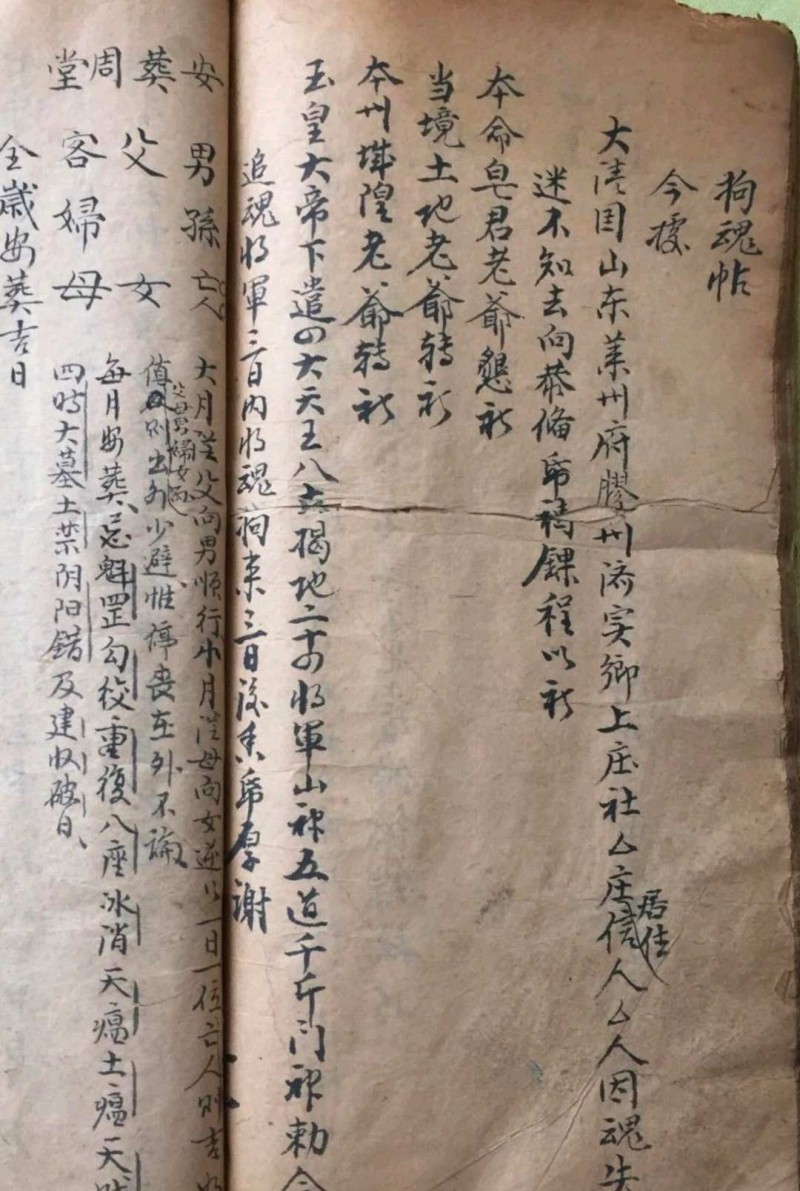 拘魂帖
今據
大清国山东萊州府膠州济实鄉上庄社厶庄居住信人厶人因魂失
迷不知去向恭備帋禑錁程以祈
本命皂君老爺懇祈
当境土地老爺轉祈
本州城隍老爺轉祈
玉皇大帝下遣四大天王八大揭地二十四将軍山神五道千斤门神勅令
追魂将軍三日内将魂拘来三日後香帋厚謝
安葬周堂
男孫亡人
父女
客婦母
大月從父向男順行小月從母向女逆以一日一位亡人則吉
值父母男婦女則出外少避性停喪在外不論
每月安葬忌魁罡勾校重復八座冰消天瘟土瘟天賊
四時大墓土禁阴阳錯及建收破日
全歲安葬吉日